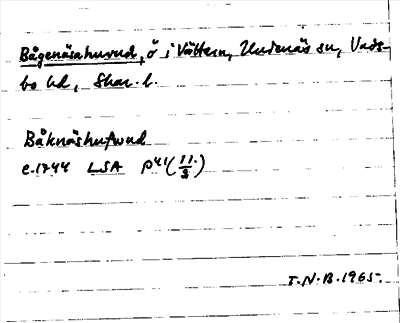 Bågenäsahuvud, ö i Vättern, Undenäs sn, Vads-
bo hd, Skar. l.
Båknäshufwud
c.1744 LSA P41(11./2)
T.N.B.1965.